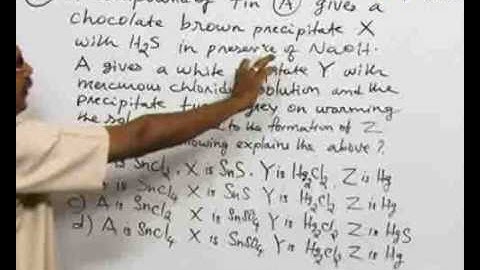 compound of Tin (A) gives a
chocolate brown precipitate X
with H₂S in presence of NaOH.
A gives a white Y with
mercurous chloride solution and the
precipitate grey on warming
the to the formation of Z
following explains the above ?
is SnCl₂, X is SnS. Y is Hg₂Cl₂, Z is Hg
is SnCl₄ X is SnS Y is Hg₂Cl₂ Z is Hg
c) A is SnCl₂ X is SnSO₄ Y is Hg₂Cl₂ Z is Hg
d) A is SnCl₄ X is SnSO₄ Y is Hg₂Cl₂ Z is HgS